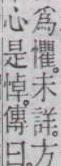 爲懼。未詳。方
心是悼。傳曰。